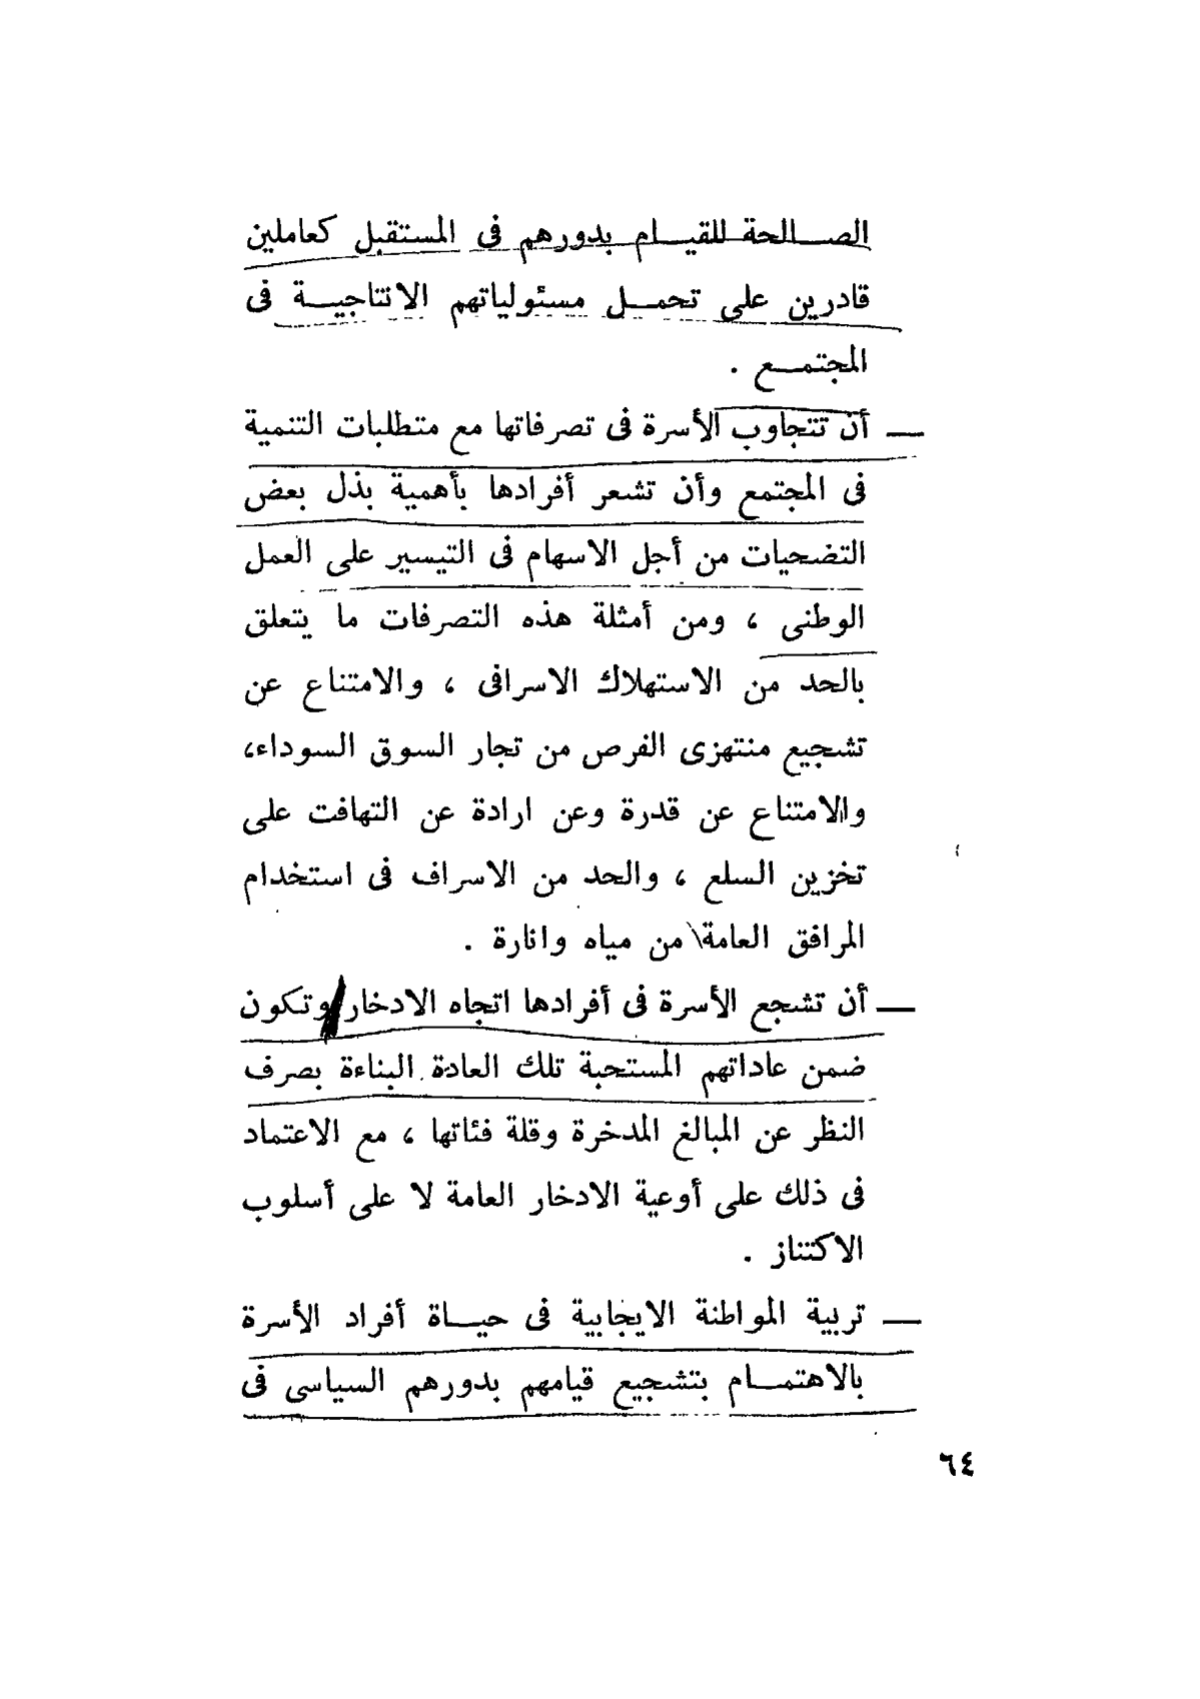 الصالحة للقيام بدورهم فى المستقبل كعاملين
قادرين على تحمل مسئولياتهم الانتاجية فى
المجتمع .
— أن تتجاوب الأسرة فى تصرفاتها مع متطلبات التنمية
فى المجتمع وأن تشعر أفرادها بأهمية بذل بعض
التضحيات من أجل الاسهام فى التيسير على العمل
الوطنى ، ومن أمثلة هذه التصرفات ما يتعلق
بالحد من الاستهلاك الاسرافى ، والامتناع عن
تشجيع منتهزى الفرص من تجار السوق السوداء،
والامتناع عن قدرة وعن ارادة عن التهافت على
تخزين السلع ، والحد من الاسراف فى استخدام
المرافق العامة من مياه وانارة .
— أن تشجع الأسرة فى أفرادها اتجاه الادخار وتكون
ضمن عاداتهم المستحبة تلك العادة البناءة بصرف
النظر عن المبالغ المدخرة وقلة فئاتها ، مع الاعتماد
فى ذلك على أوعية الادخار العامة لا على أسلوب
الاكتناز .
— تربية المواطنة الايجابية فى حياة أفراد الأسرة
بالاهتمام بتشجيع قيامهم بدورهم السياسى فى
٦٤